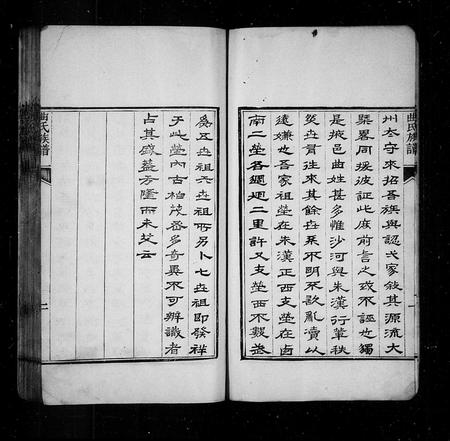 曲氏族譜
一
州太守來招吾族與認弌家敘其源流大
槩畧同援彼証此庶前言之或不誣也獨
是掖邑曲姓甚多惟沙河與朱漢行輩秩
然世有往來其餘世系不明不敢亂瀆以
遠嫌也吾家祖塋在朱漢正西支塋在卤
南二塋各週廻二里許又支塋西不數
為五世祖六世祖所另卜七世祖即發祥
于此塋內古柏茂盛多奇異不可辨識者
占其盛蓋方隆而未艾云
曲氏族譜
二